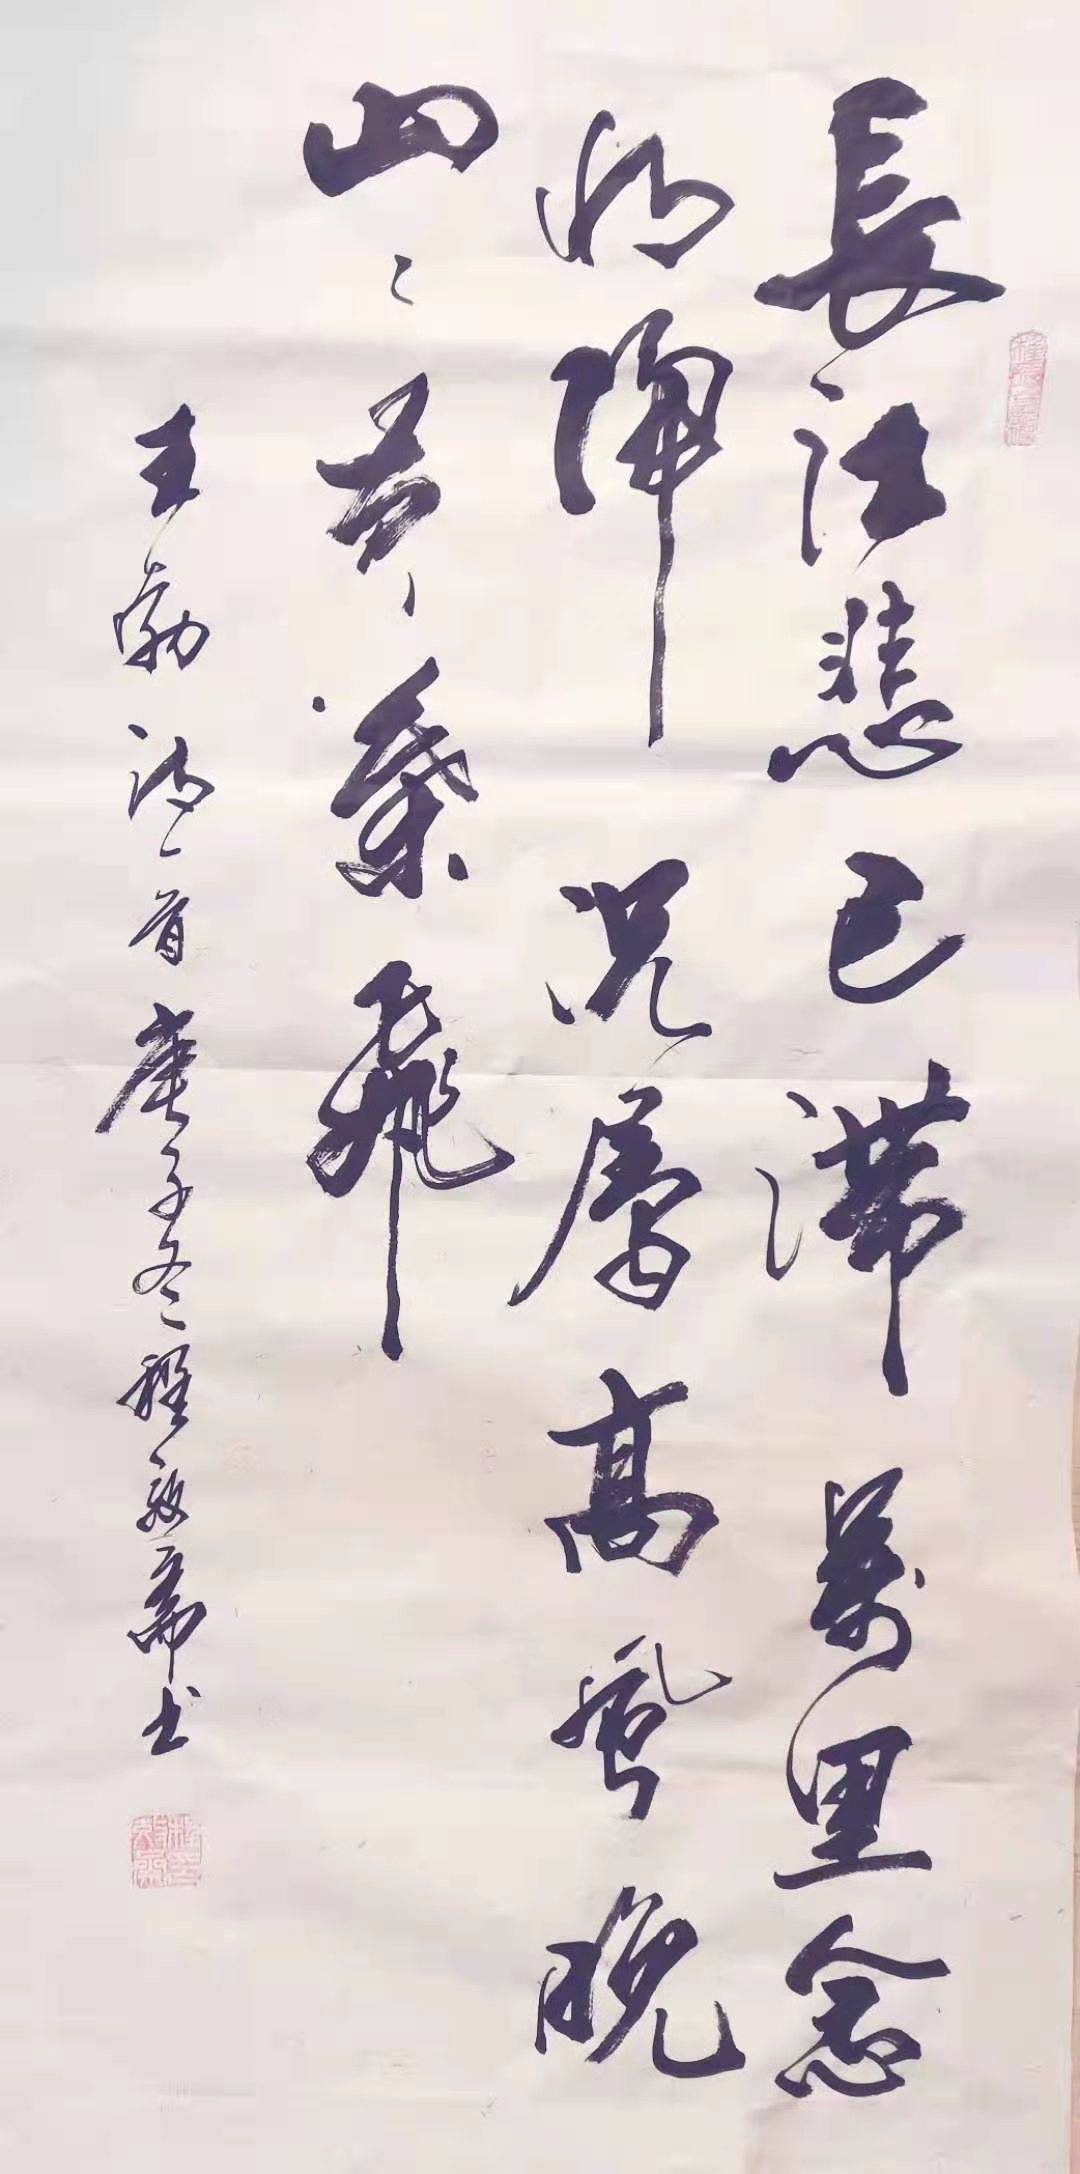 長江悲已滯萬里念
將歸況屬高風晚
山々黃葉飛
王勃詩一首庚子冬程敬齋书